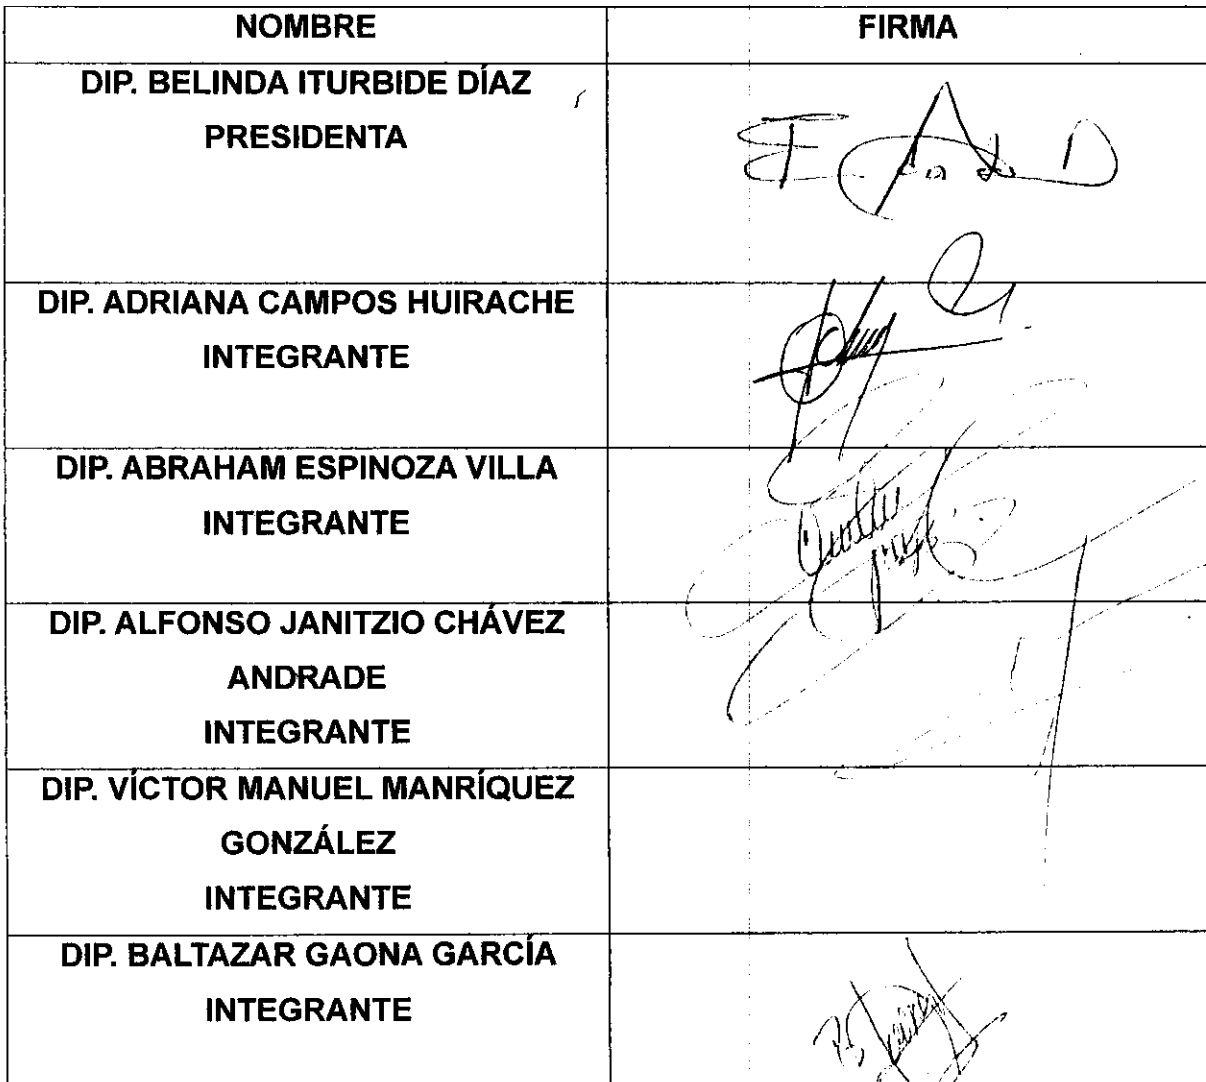 NOMBRE
FIRMA
DIP. BELINDA ITURBIDE DÍAZ
PRESIDENTA
DIP. ADRIANA CAMPOS HUIRACHE
INTEGRANTE
DIP. ABRAHAM ESPINOZA VILLA
INTEGRANTE
DIP. ALFONSO JANITZIO CHÁVEZ
ANDRADE
INTEGRANTE
DIP. VÍCTOR MANUEL MANRÍQUEZ
GONZÁLEZ
INTEGRANTE
DIP. BALTAZAR GAONA GARCÍA
INTEGRANTE